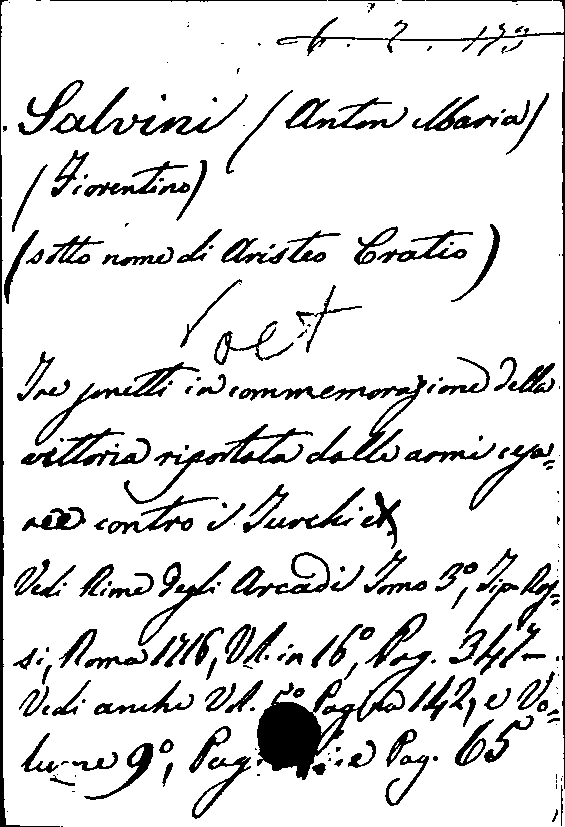 6. 2. 173
Salvini (Anton Maria)
(Fiorentino)
(sotto nome di Aristeo Cratio)
Poet
Tre sonetti in commemorazione della
vittoria riportata dalle armi cesa=
ree contro i Turchi
Vedi Rime degli Arcadi Tomo 3º, Tip. Ros=
si, Roma 1716, Vol. in 16º, Pag. 347—
Vedi anche Vol. Pagina 142, e Vo=
lume 9º, Pag. e Pag. 65